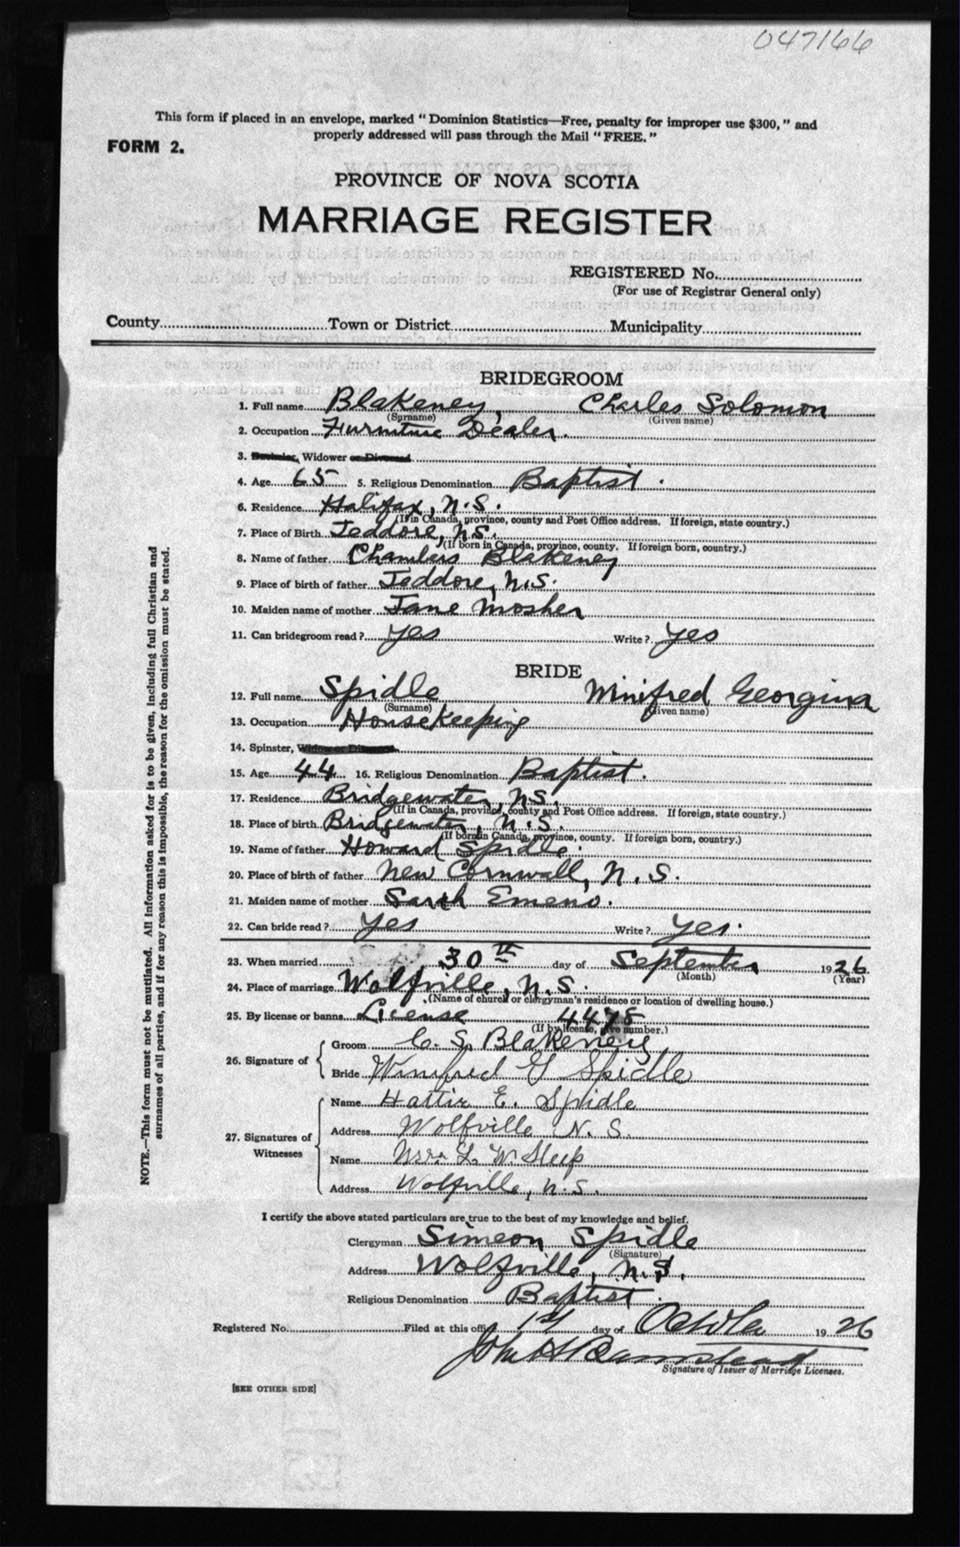 047166
This form if placed in an envelope, marked "Dominion Statistics—Free, penalty for improper use $300," and
properly addressed will pass through the Mail "FREE."
FORM 2.
PROVINCE OF NOVA SCOTIA
MARRIAGE REGISTER
REGISTERED No.
(For use of Registrar General only)
County Town or District Municipality
BRIDEGROOM
1. Full name Blakeney, Charles Solomon
(Surname) (Given name)
2. Occupation Furniture Dealer.
3. Bachelor, Widower or Divorced
4. Age 65 5. Religious Denomination Baptist.
6. Residence Halifax, N.S.
(If in Canada, province, county and Post Office address. If foreign, state country.)
7. Place of Birth Jeddore, N.S.
(If born in Canada, province, county. If foreign born, country.)
8. Name of father Chambers Blakeney
9. Place of birth of father Jeddore, N.S.
10. Maiden name of mother Jane Mosher
11. Can bridegroom read? yes Write? yes
BRIDE
12. Full name Spidle Winifred Georgina
(Surname) (Given name)
13. Occupation Housekeeping
14. Spinster, Widow or Divorced
15. Age 44 16. Religious Denomination Baptist.
17. Residence Bridgewater, N.S.
(If in Canada, province, county and Post Office address. If foreign, state country.)
18. Place of birth Bridgewater, N.S.
(If born in Canada, province, county. If foreign born, country.)
19. Name of father Howard Spidle.
20. Place of birth of father New Cornwall, N.S.
21. Maiden name of mother Sarah Emeno.
22. Can bride read? yes Write? yes.
23. When married 30th day of September 1926
(Month) (Year)
24. Place of marriage Wolfville, N.S.
(Name of church or clergyman's residence or location of dwelling house.)
25. By license or banns License 4478
(If by license, give number.)
26. Signature of
Groom C. S. Blakeney
Bride Winifred G Spidle
27. Signatures of Witnesses
Name Hattie E. Spidle
Address Wolfville N. S.
Name Mrs. L. W Sleep
Address Wolfville, N.S.
I certify the above stated particulars are true to the best of my knowledge and belief.
Clergyman Simeon Spidle
(Signature)
Address Wolfville, N.S.
Religious Denomination Baptist.
Registered No. Filed at this office 1st day of October 1926
John H
Signature of Issuer of Marriage Licenses.
[SEE OTHER SIDE]
NOTE.—This form must not be mutilated. All information asked for is to be given, including full Christian and
surnames of all parties, and if for any reason this is impossible, the reason for the omission must be stated.